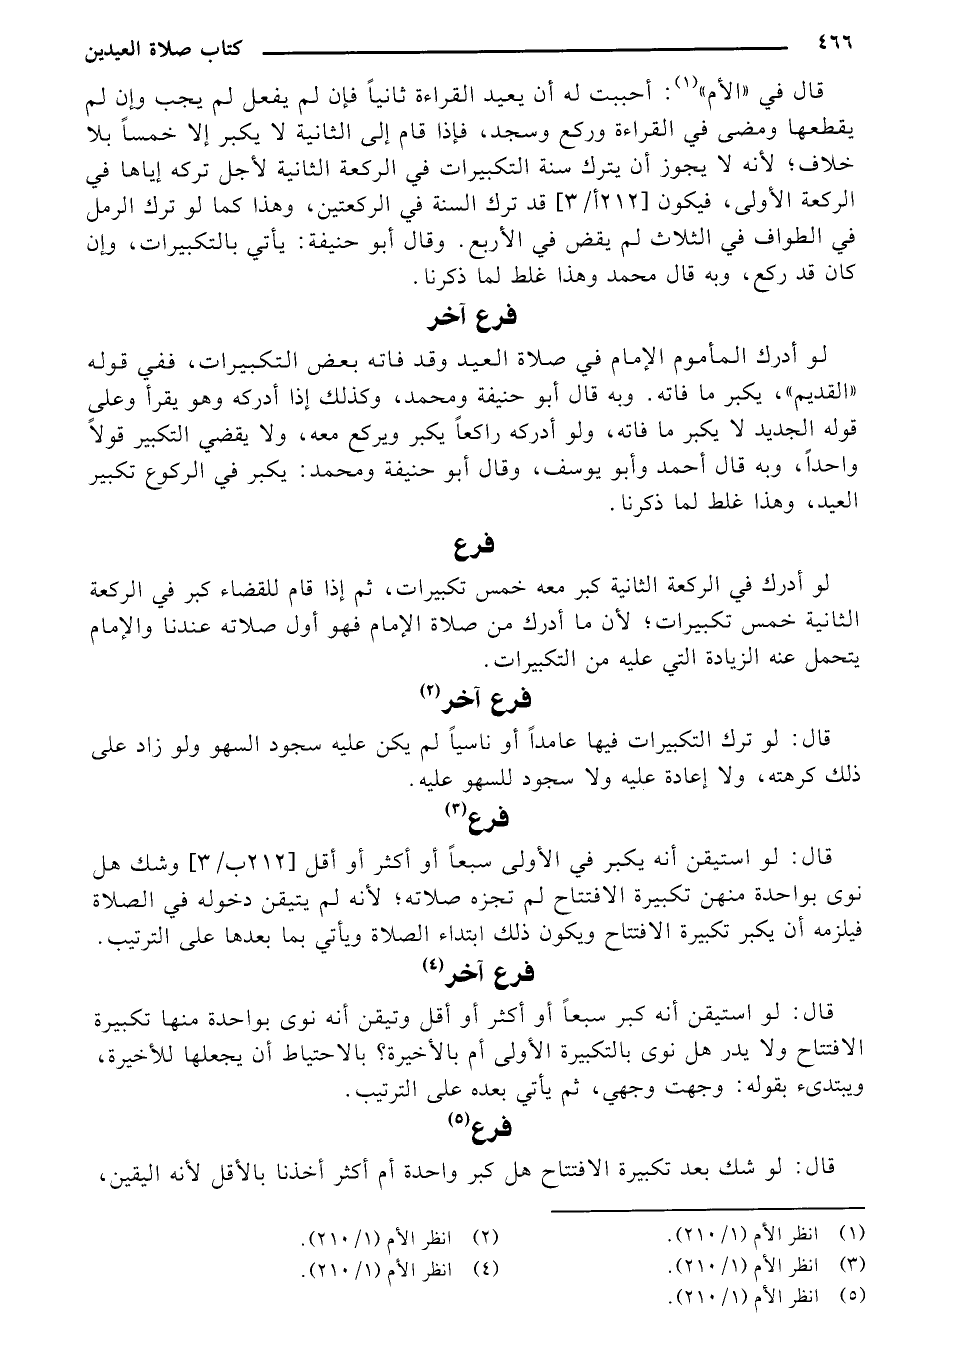 ٤٦٦ كتاب صلاة العيدين
قال في «الأم»(١): أحببت له أن يعيد القراءة ثانياً فإن لم يفعل لم يجب وإن لم
يقطعها ومضى في القراءة وركع وسجد، فإذا قام إلى الثانية لا يكبر إلا خمساً بلا
خلاف؛ لأنه لا يجوز أن يترك سنة التكبيرات في الركعة الثانية لأجل تركه إياها في
الركعة الأولى، فيكون [٢١٢أ/ ٣] قد ترك السنة في الركعتين، وهذا كما لو ترك الرمل
في الطواف في الثلاث لم يقض في الأربع. وقال أبو حنيفة: يأتي بالتكبيرات، وإن
كان قد ركع، وبه قال محمد وهذا غلط لما ذكرنا.
فرع آخر
لو أدرك المأموم الإمام في صلاة العيد وقد فاته بعض التكبيرات، ففي قوله
«القديم»، يكبر ما فاته. وبه قال أبو حنيفة ومحمد، وكذلك إذا أدركه وهو يقرأ وعلى
قوله الجديد لا يكبر ما فاته، ولو أدركه راكعاً يكبر ويركع معه، ولا يقضي التكبير قولاً
واحداً، وبه قال أحمد وأبو يوسف، وقال أبو حنيفة ومحمد: يكبر في الركوع تكبير
العيد، وهذا غلط لما ذكرنا.
فرع
لو أدرك في الركعة الثانية كبر معه خمس تكبيرات، ثم إذا قام للقضاء كبر في الركعة
الثانية خمس تكبيرات؛ لأن ما أدرك من صلاة الإمام فهو أول صلاته عندنا والإمام
يتحمل عنه الزيادة التي عليه من التكبيرات.
فرع آخر(٢)
قال: لو ترك التكبيرات فيها عامداً أو ناسياً لم يكن عليه سجود السهو ولو زاد على
ذلك كرهته، ولا إعادة عليه ولا سجود للسهو عليه.
فرع(٣)
قال: لو استيقن أنه يكبر في الأولى سبعاً أو أكثر أو أقل [٢١٢ب/ ٣] وشك هل
نوى بواحدة منهن تكبيرة الافتتاح لم تجزه صلاته؛ لأنه لم يتيقن دخوله في الصلاة
فيلزمه أن يكبر تكبيرة الافتتاح ويكون ذلك ابتداء الصلاة ويأتي بما بعدها على الترتيب.
فرع آخر(٤)
قال: لو استيقن أنه كبر سبعاً أو أكثر أو أقل وتيقن أنه نوى بواحدة منها تكبيرة
الافتتاح ولا يدر هل نوى بالتكبيرة الأولى أم بالأخيرة؟ بالاحتياط أن يجعلها للأخيرة،
ويبتدىء بقوله: وجهت وجهي، ثم يأتي بعده على الترتيب.
فرع(٥)
قال: لو شك بعد تكبيرة الافتتاح هل كبر واحدة أم أكثر أخذنا بالأقل لأنه اليقين،
(١) انظر الأم (١/ ٢١٠). (٢) انظر الأم (١/ ٢١٠).
(٣) انظر الأم (١/ ٢١٠). (٤) انظر الأم (١/ ٢١٠).
(٥) انظر الأم (١/ ٢١٠).